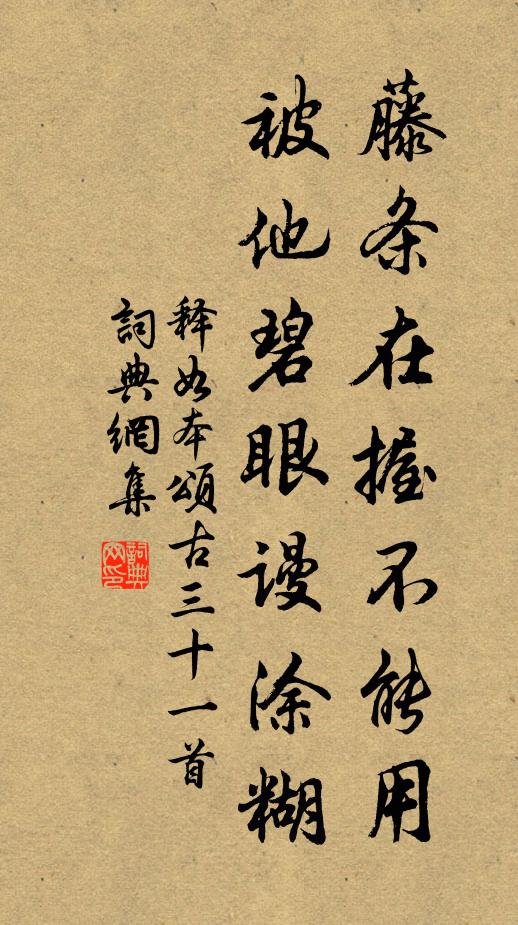 藤条在握不能用
被他碧眼谩涂糊
释如本颂古三十一首
詞典網集
詞典网印